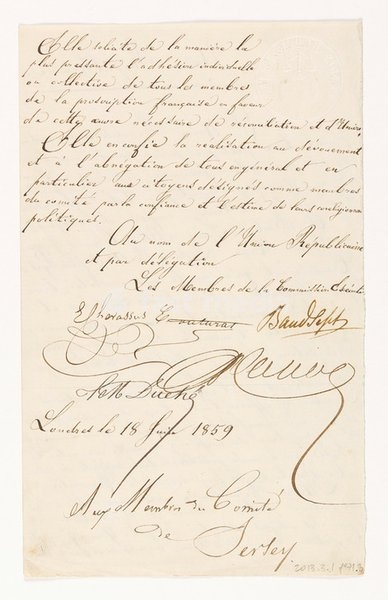 Elle solicite de la manière la
plus pressante l'adhésion individuelle
ou collective de tous les membres
de la proscription française en faveur
de cette œuvre nécessaire de réconciliation et d'Union.
Elle en confie la réalisation au dévouement
et à l'abnégation de tous en général et en
particulier aux citoyens désignés comme membres
du comité par la confiance et l'estime de leurs coreligionnaires
politiques.
Au nom de l'Union Républicaine
et par délégation
Les Membres de la Commission
Londres le 18 1859
Aux Membres du Comité
de Jersey
2013.3.1